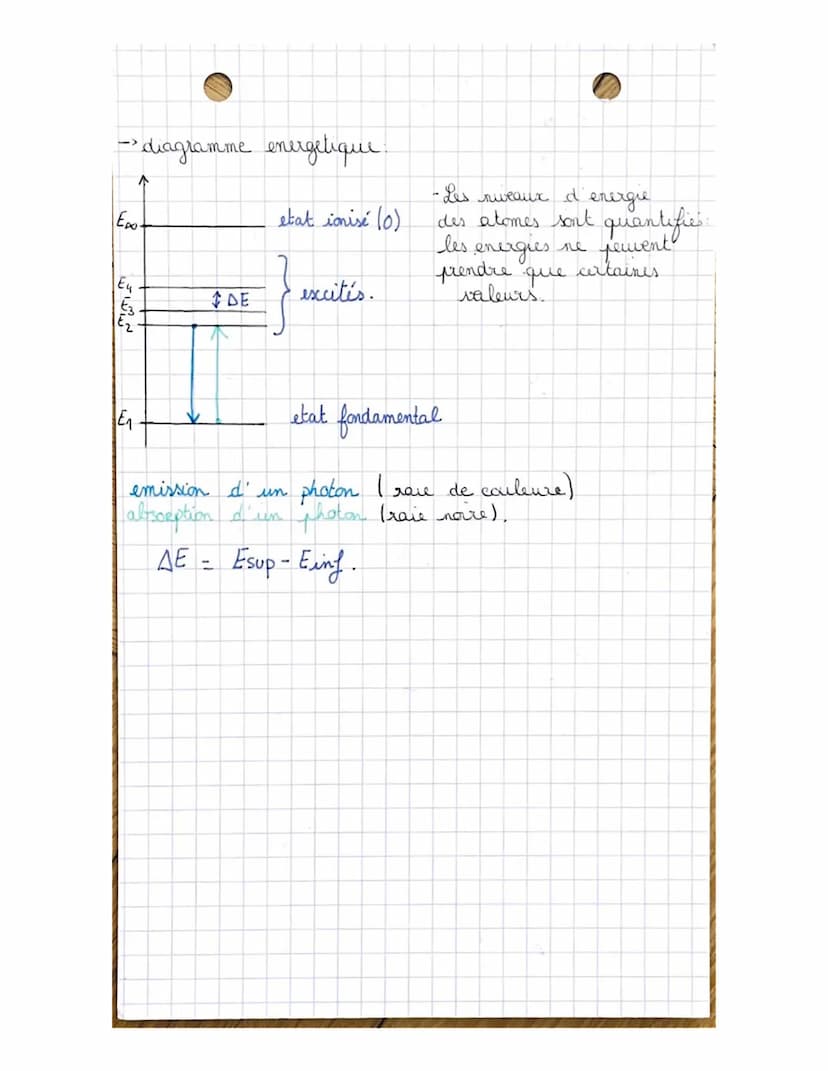 -> diagramme energetique:
E∞
etat ionisé (0)
E4
E3
E2
ΔE
excités.
E1
etat fondamental
- Les niveaux d'energie
des atomes sont quantifiés:
les energies ne peuvent
prendre que certaines
valeurs.
emission d'un photon (raie de couleure)
absorption d'un photon (raie noire).
ΔE = Esup - Einf.